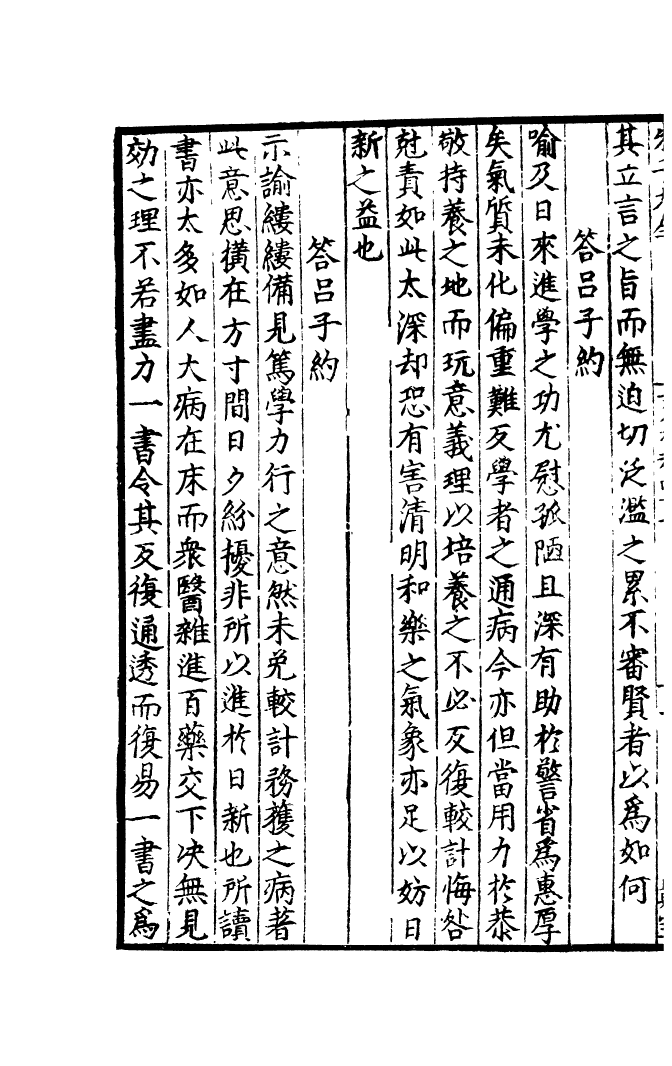 其立言之旨而無迫切泛濫之累不審賢者以爲如何
答呂子約
喻及日來進學之功尤慰孤陋且深有助於警省爲惠厚
矣氣質未化偏重難反學者之通病今亦但當用力於恭
敬持養之地而玩意義理以培養之不必反復較計悔咎
尅責如此太深却恐有害清明和樂之氣象亦足以妨日
新之益也
答呂子約
示諭縷縷備見篤學力行之意然未免較計務穫之病著
此意思橫在方寸間日夕紛擾非所以進於日新也所讀
書亦太多如人大病在床而衆醫雜進百藥交下决無見
効之理不若盡力一書令其反復通透而復易一書之爲